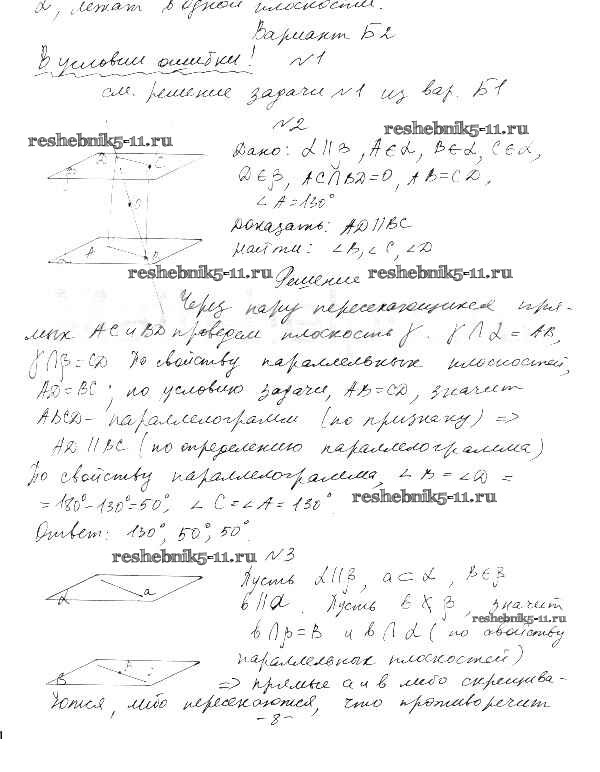 α, лежат в одной плоскости.
Вариант Б2
В условии ошибки! №1
см. решение задачи №1 из вар. Б1
№2
reshebnik5-11.ru
reshebnik5-11.ru
Дано: α∥β, A∈α, B∈α, C∈α,
D∈β, AC∩BD=O, AB=CD,
∠A=130°
Доказать: AD∥BC
Найти: ∠B, ∠C, ∠D
reshebnik5-11.ru Решение reshebnik5-11.ru
Через пару пересекающихся пря-
мых AC и BD проведем плоскость γ. γ∩α=AB,
γ∩β=CD По свойству параллельных плоскостей,
AD=BC; по условию задачи, AB=CD, значит
ABCD- параллелограмм (по признаку) =>
AD∥BC (по определению параллелограмма)
По свойству параллелограмма, ∠B=∠D=
=180°-130°=50°, ∠C=∠A=130°
reshebnik5-11.ru
Ответ: 130°, 50°, 50°.
reshebnik5-11.ru №3
Пусть α∥β, a⊂α, B∈β
b∥a. Пусть b β, значит
reshebnik5-11.ru
b∩β=B и b∩α (по свойству
параллельных плоскостей)
=> прямые a и b либо скрещива-
ются, либо пересекаются, что противоречит
-8-